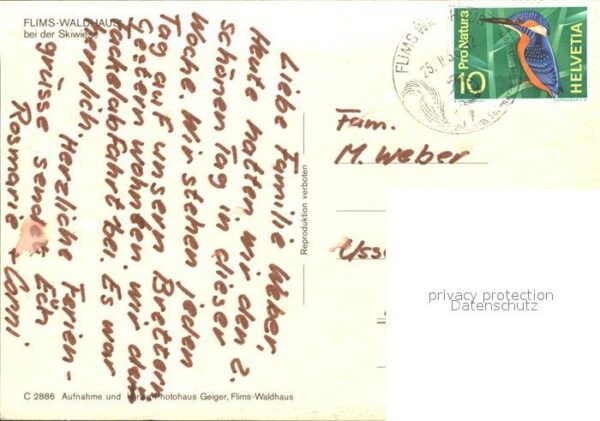 FLIMS-WALDHAUS
bei der Skiwiese
Liebe Familie Weber,
Heute hatten wir den 2.
schönen Tag in dieser
Woche. Wir stehen jeden
Tag auf unsern Brettern
Gestern wohnten wir der
Fackelabfahrt bei. Es war
herrlich. Herzliche Ferien-
grüsse senden Euch
Rosmarie + Conni
C 2886 Aufnahme und Verlag Photohaus Geiger, Flims-Waldhaus
Reproduktion verboten
FLIMS
25.
Pro Natura
10
HELVETIA
Fam.
M. Weber
privacy protection
Datenschutz